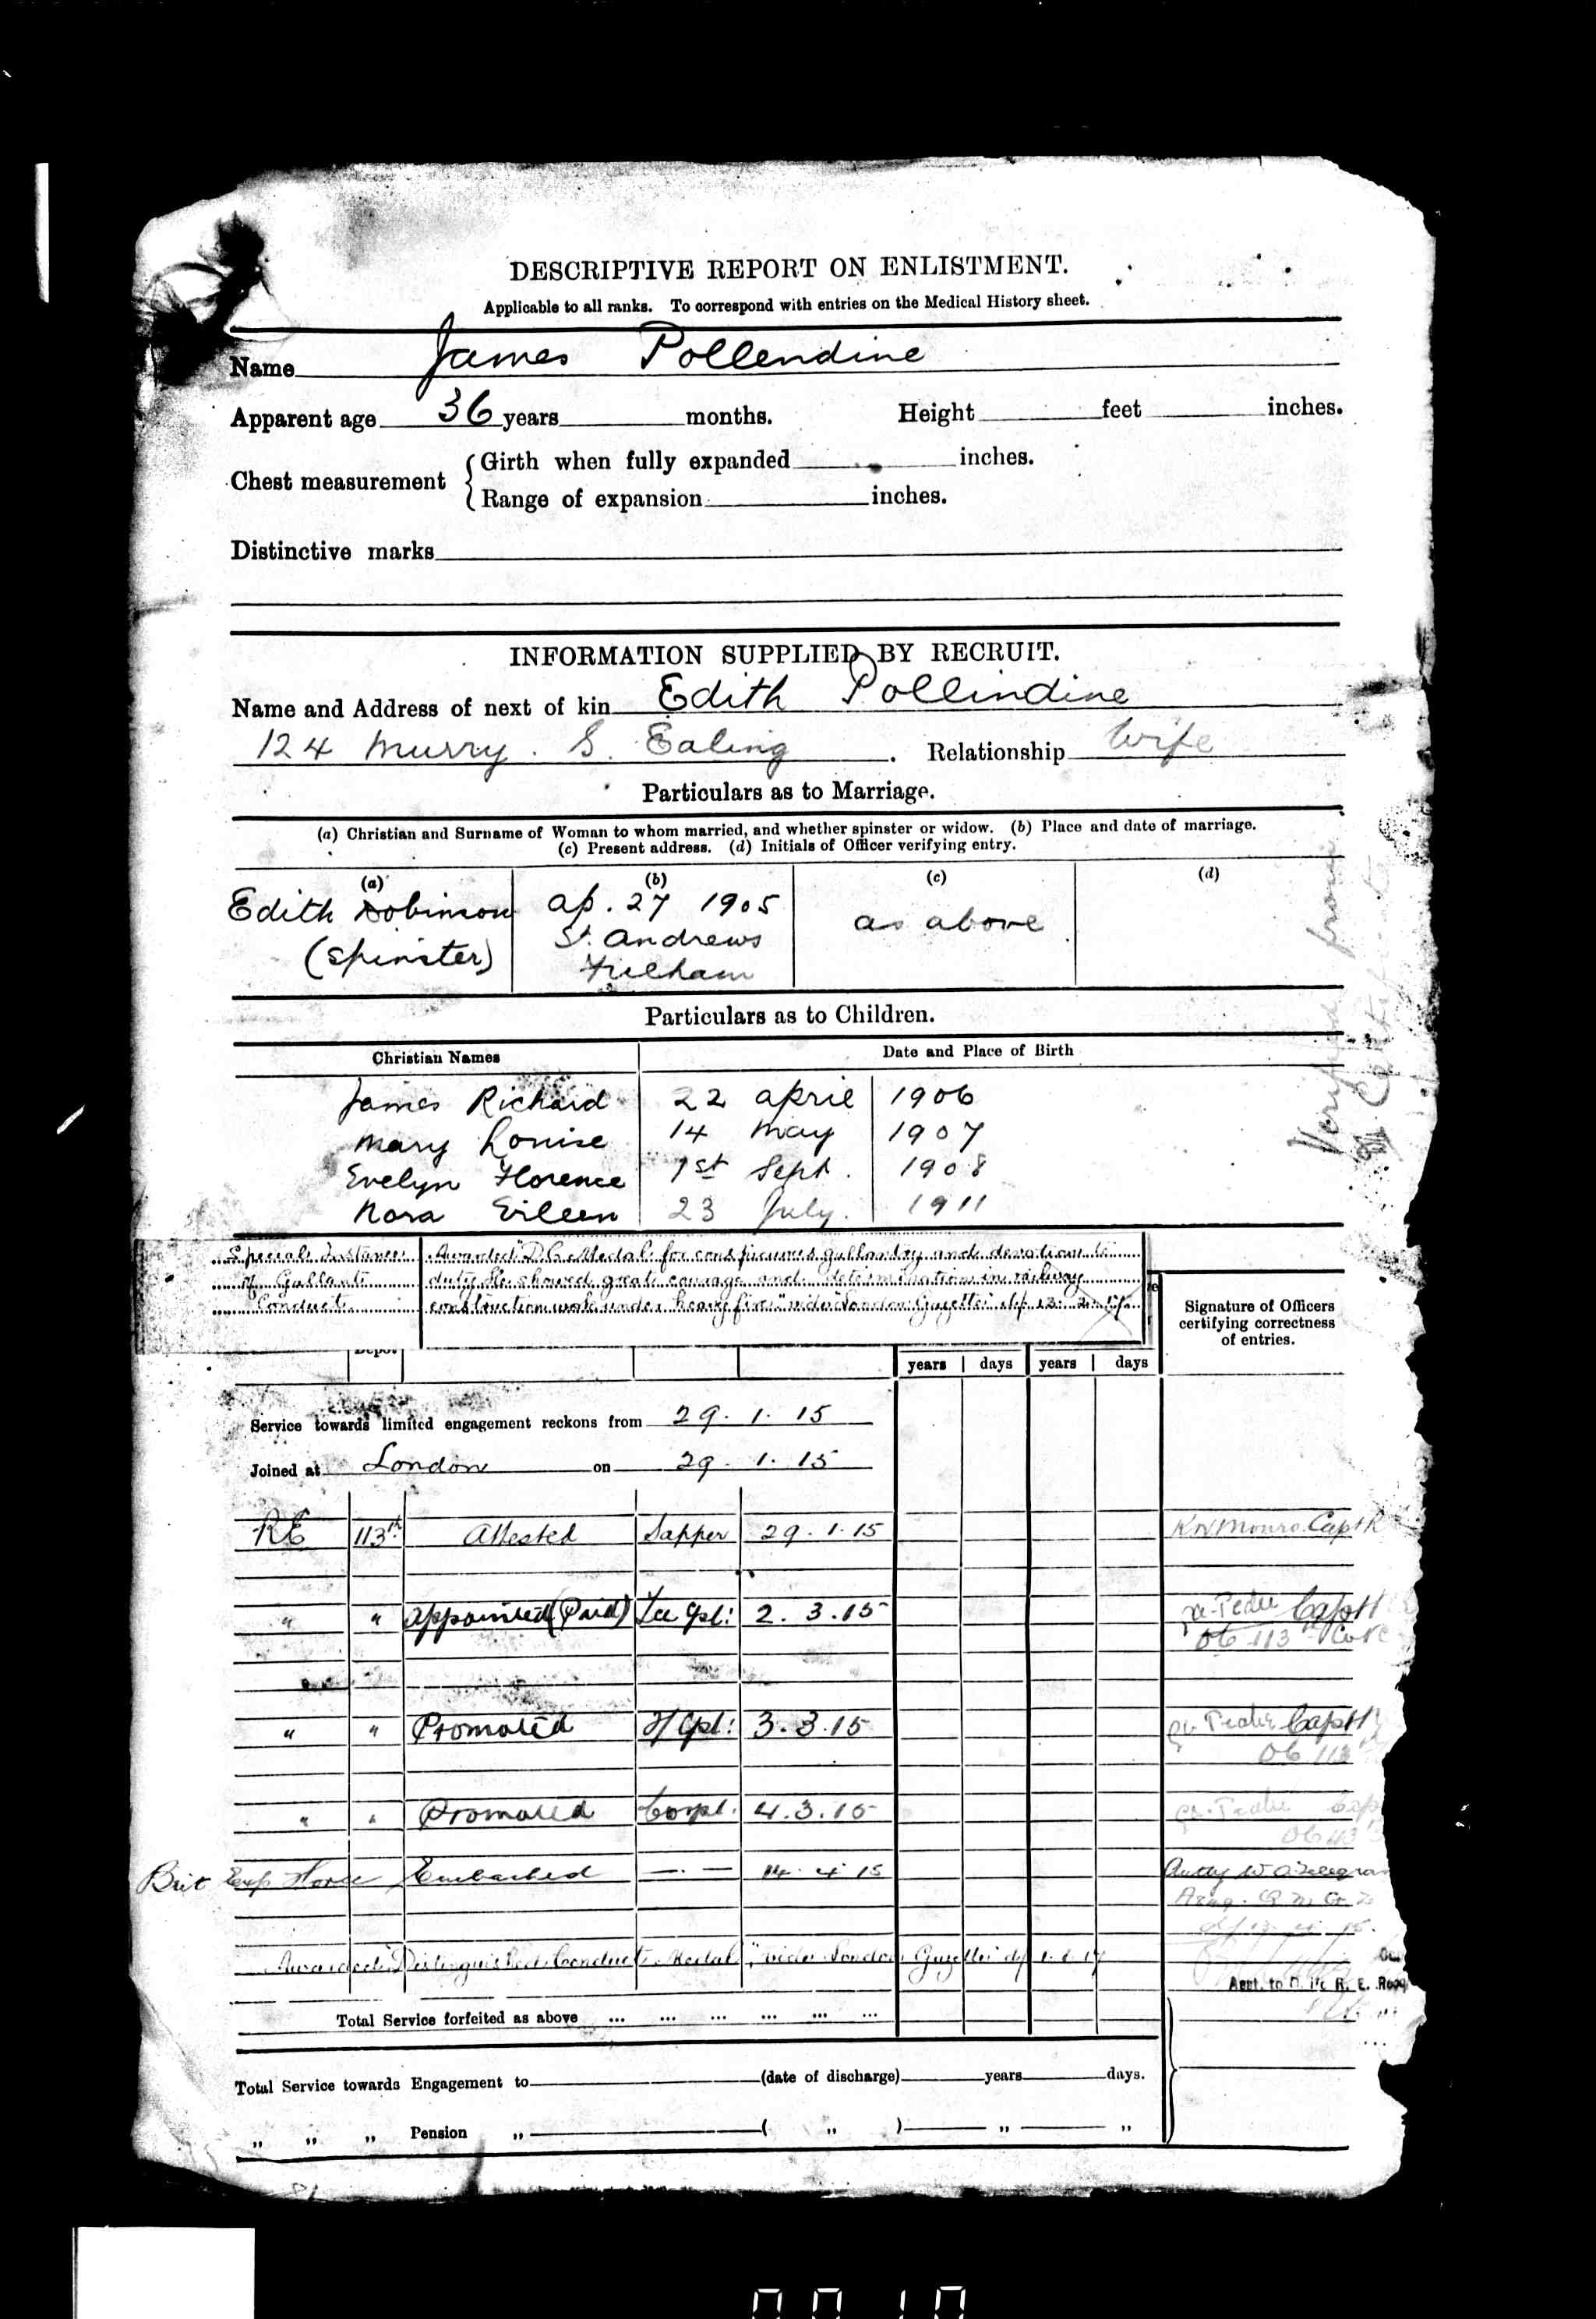 DESCRIPTIVE REPORT ON ENLISTMENT.
Applicable to all ranks. To correspond with entries on the Medical History sheet.
Name James Pollendine
Apparent age 36 years months. Height feet inches.
Chest measurement { Girth when fully expanded inches.
Range of expansion inches.
Distinctive marks
INFORMATION SUPPLIED BY RECRUIT.
Name and Address of next of kin Edith Pollindine
124 Murry. S. Ealing. Relationship Wife
Particulars as to Marriage.
(a) Christian and Surname of Woman to whom married, and whether spinster or widow. (b) Place and date of marriage.
(c) Present address. (d) Initials of Officer verifying entry.
(a) (b) (c) (d)
Edith Dobinson ap. 27 1905 as above
(Spinster) St. Andrews
Fulham
Verified from
Certificate
Particulars as to Children.
Christian Names Date and Place of Birth
James Richard 22 april 1906
Mary Louise 14 May 1907
Evelyn Florence 1st Sept. 1908
Nora Eileen 23 July. 1911
Special Instances Awarded "D.C. Medal" for conspicuous gallantry and devotion to
of Gallant duty. He showed great courage and determination in railway
Conduct construction work under heavy fire." vide "London Gazette" d/ 13. 2. 17.
Signature of Officers
certifying correctness
of entries.
Depot years days years days
Service towards limited engagement reckons from 29. 1. 15
Joined at London on 29. 1. 15
RE 113th Attested Sapper 29. 1. 15 Monro. Capt R
" " Appointed (Paid) Lce Cpl: 2. 3. 15 Capt
OC 113
" " Promoted 2/Cpl: 3. 3. 15 Capt
OC 113
" " Promoted Corpl. 4. 3. 15
OC 113
Brit Exp Force Embarked —.— 14. 4. 15 Authy W.O. Telegram
Awarded "Distinguished Conduct Medal", vide London Gazette d/ 1. 1. 17
Asst. to O. i/c R. E. Rec
Total Service forfeited as above ... ... ... ... ... ...
Total Service towards Engagement to (date of discharge) years days.
" " " Pension " ( " ) " "
0010